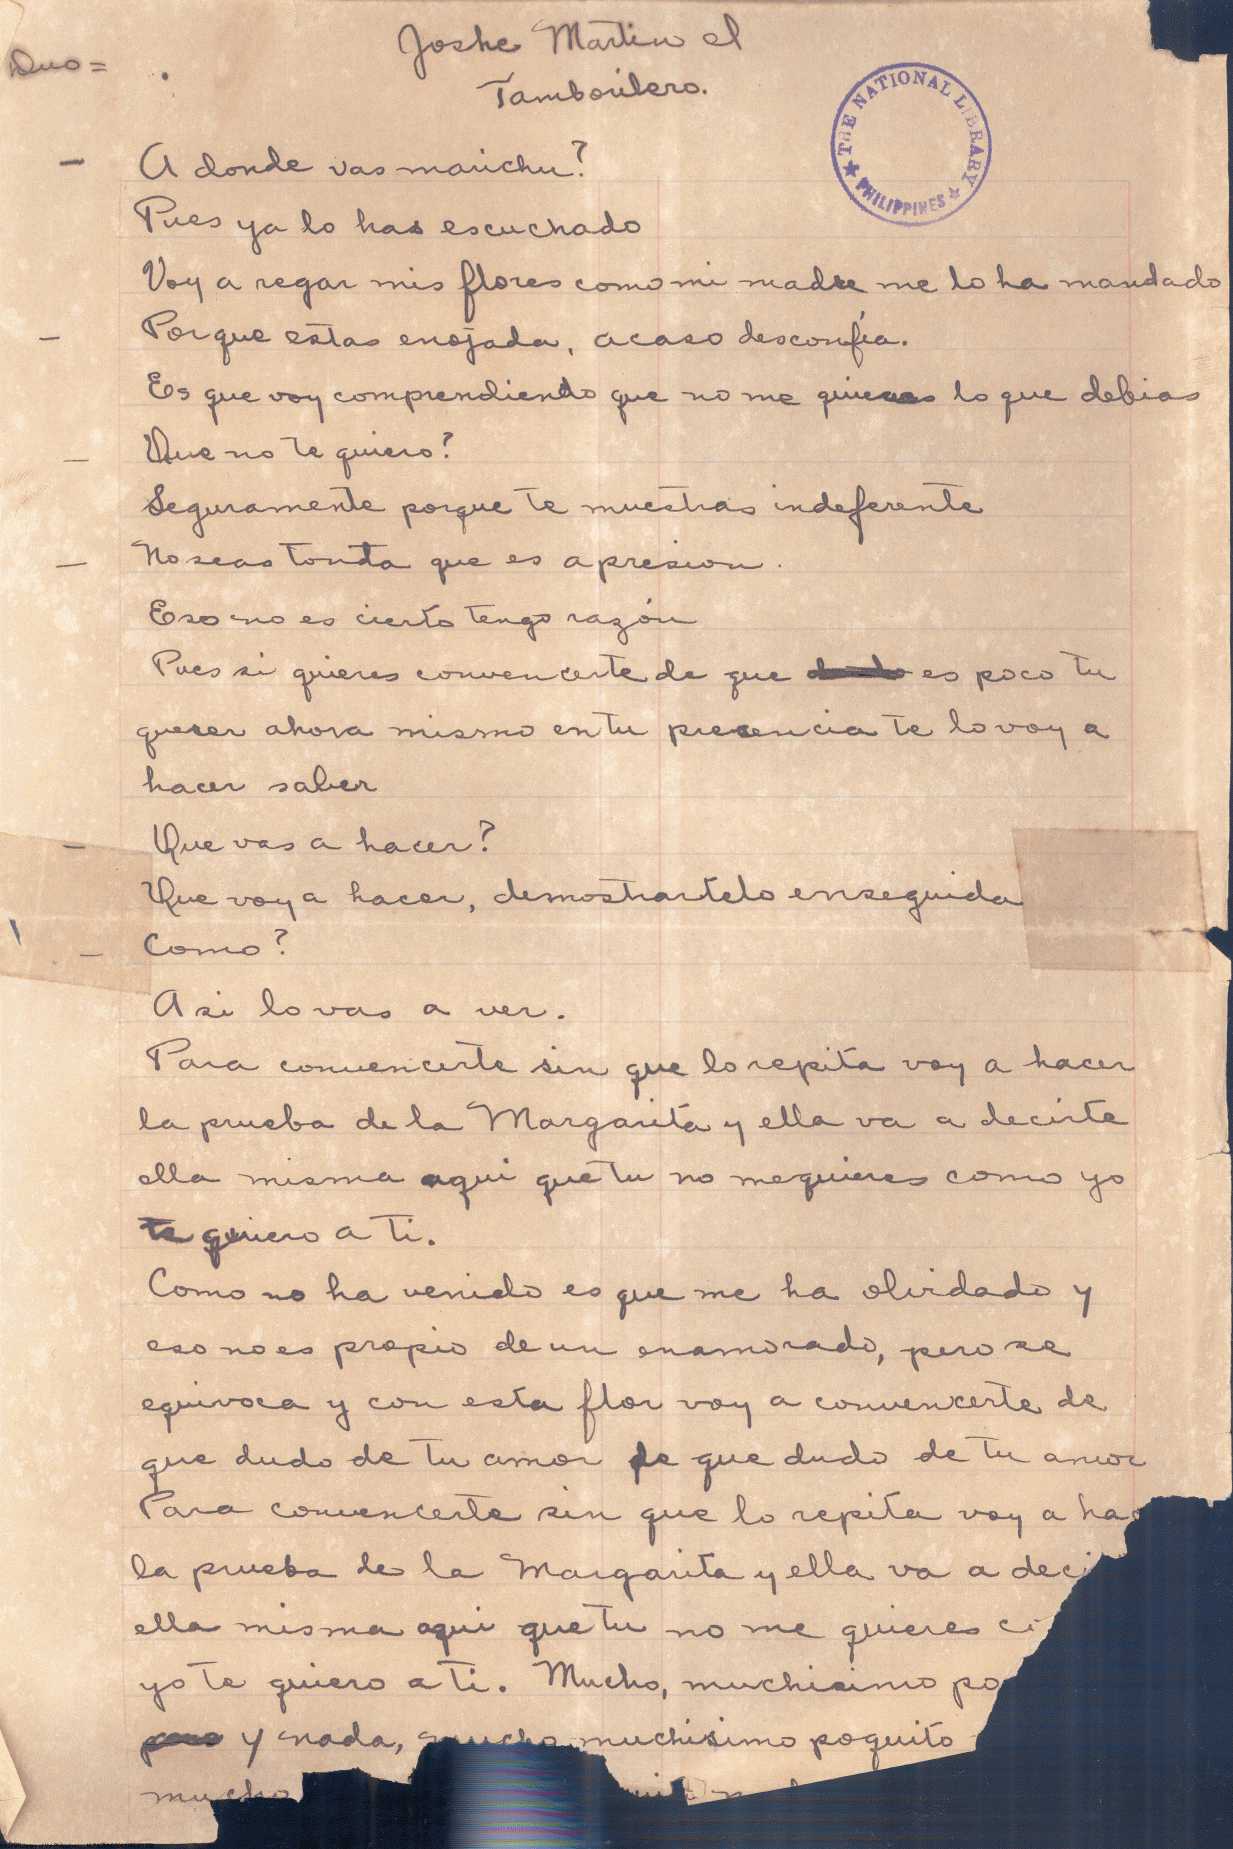 Duo =
Joshe Martin el
Tamborilero.
THE NATIONAL LIBRARY
PHILIPPINES
- A donde vas marichu?
Pues ya lo has escuchado
Voy a regar mis flores como mi madre me lo ha mandado
- Por que estas enojada, acaso desconfia.
Es que voy comprendiendo que no me quieres lo que debias
- Que no te quiero?
Seguramente porque te muestras indeferente
- No seas tonta que es apresion.
Eso no es cierto tengo razón
Pues si quieres convencerte de que es poco tu
querer ahora mismo en tu presencia te lo voy a
hacer saber
- Que vas a hacer?
Que voy a hacer, demostrartelo enseguida
- Como?
Asi lo vas a ver.
Para convencerte sin que lo repita voy a hacer
la prueba de la Margarita y ella va a decirte
ella misma aqui que tu no me quieres como yo
te quiero a ti.
Como no ha venido es que me ha olvidado y
eso no es propio de un enamorado, pero se
equivoca y con esta flor voy a convencerte de
que dudo de tu amor de que dudo de tu amor
Para convencerte sin que lo repita voy a hac
la prueba de la Margarita y ella va a deci
ella misma aqui que tu no me quieres
yo te quiero a ti. Mucho, muchisimo po
y nada, mucho muchisimo poquito
mucho